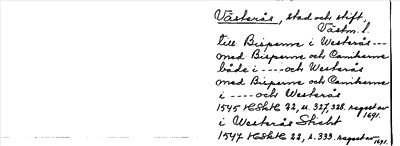 Västerås, stad och stift,
Västm. l.
till Bisperne i Westerås ---
med Bisperne och Canikerne
både i ---- och Westerås
med Bisperne och Canikerne
i ---- och Westerås
1545 HSkH 22, s. 327, 328. regest av
1691.
i Westerås Sticht
1547 HSkH 22, s. 333. regest av
1691.